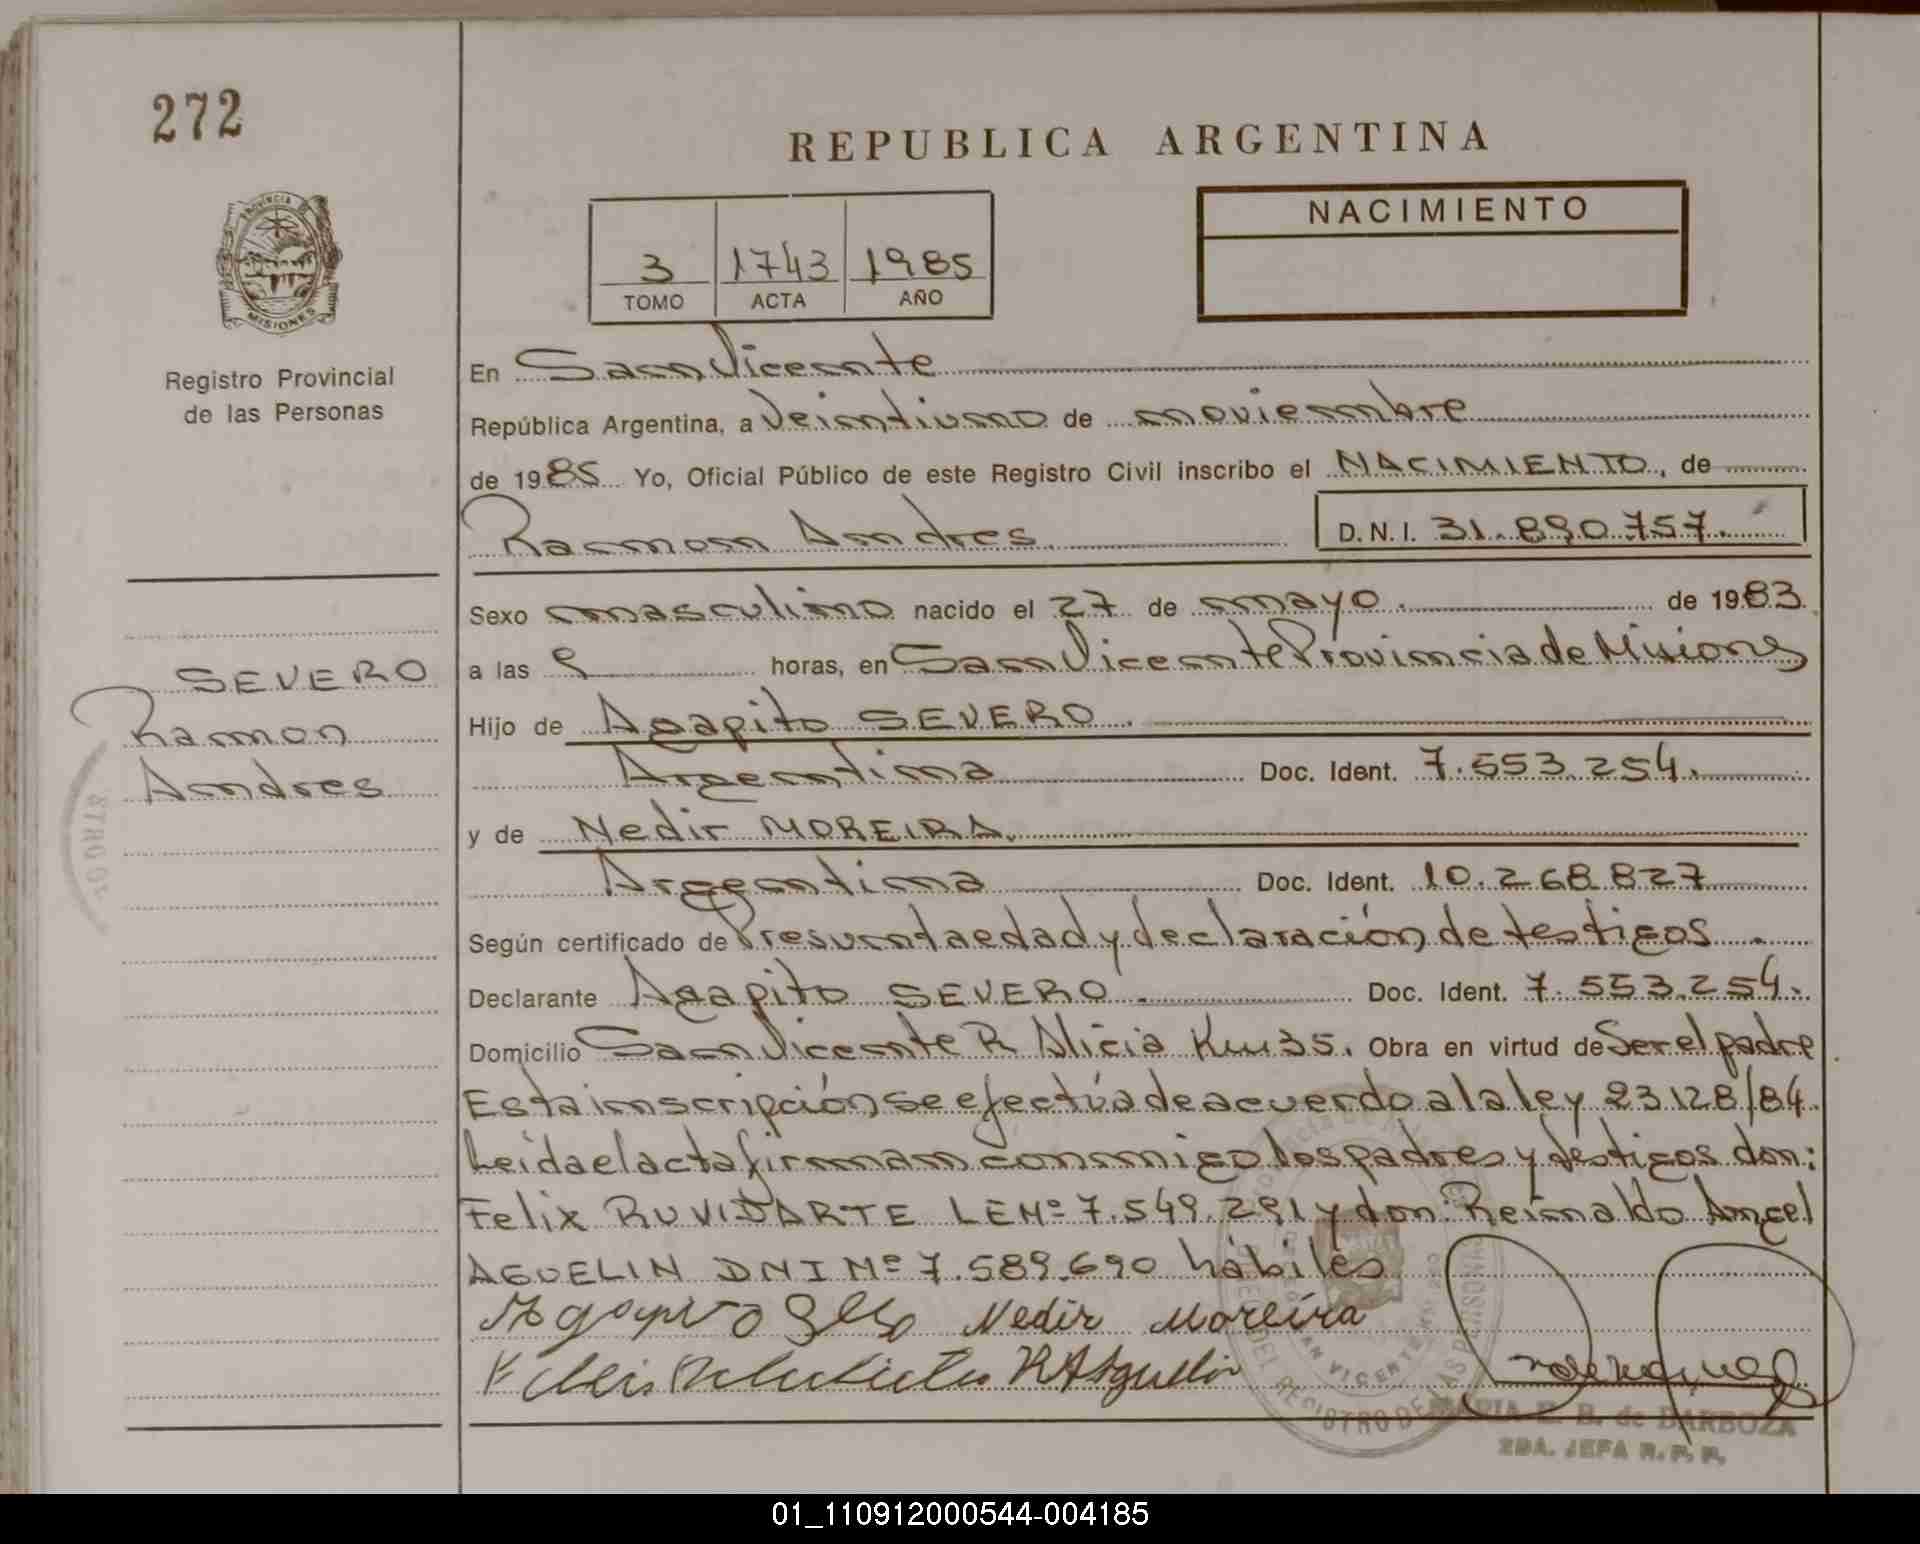 272
REPUBLICA ARGENTINA
PROVINCIA DE
MISIONES
Registro Provincial
de las Personas
3 1743 1985
TOMO ACTA AÑO
NACIMIENTO
En San Vicente
República Argentina, a Veintiuno de noviembre
de 1985 Yo, Oficial Público de este Registro Civil inscribo el NACIMIENTO, de
Ramon Andres
D.N.I. 31.890.757.
Sexo masculino nacido el 27 de mayo. de 1983.
a las 9 horas, en San Vicente Provincia de Misiones
SEVERO
Ramon
Andres
Hijo de Agapito SEVERO.
Argentina Doc. Ident. 7.553.254.
y de Nedir MOREIRA.
Argentina Doc. Ident. 10.268.827
Según certificado de Presunta edad y declaración de testigos.
Declarante Agapito SEVERO. Doc. Ident. 7.553.254.
Domicilio San Vicente R. Alicia Km 35. Obra en virtud de Ser el padre
Esta inscripción se efectúa de acuerdo a la ley 23128/84.
Leida el acta firman conmigo los padres y testigos don:
Felix RUVIDARTE LE Nº 7.549.291 y don: Reinaldo Angel
AGUELIN DNI Nº 7.589.690 hábiles
Nedir Moreira
MARIA E. B. de BARBOZA
2DA. JEFA R. P. P.
01_110912000544-004185